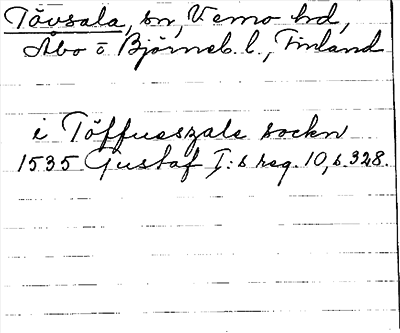 Tövsala, sn, Vemo hd,
Åbo o. Björneb. l., Finland
i Töffueszale sockn
1535 Gustaf I:s reg. 10, s. 328.